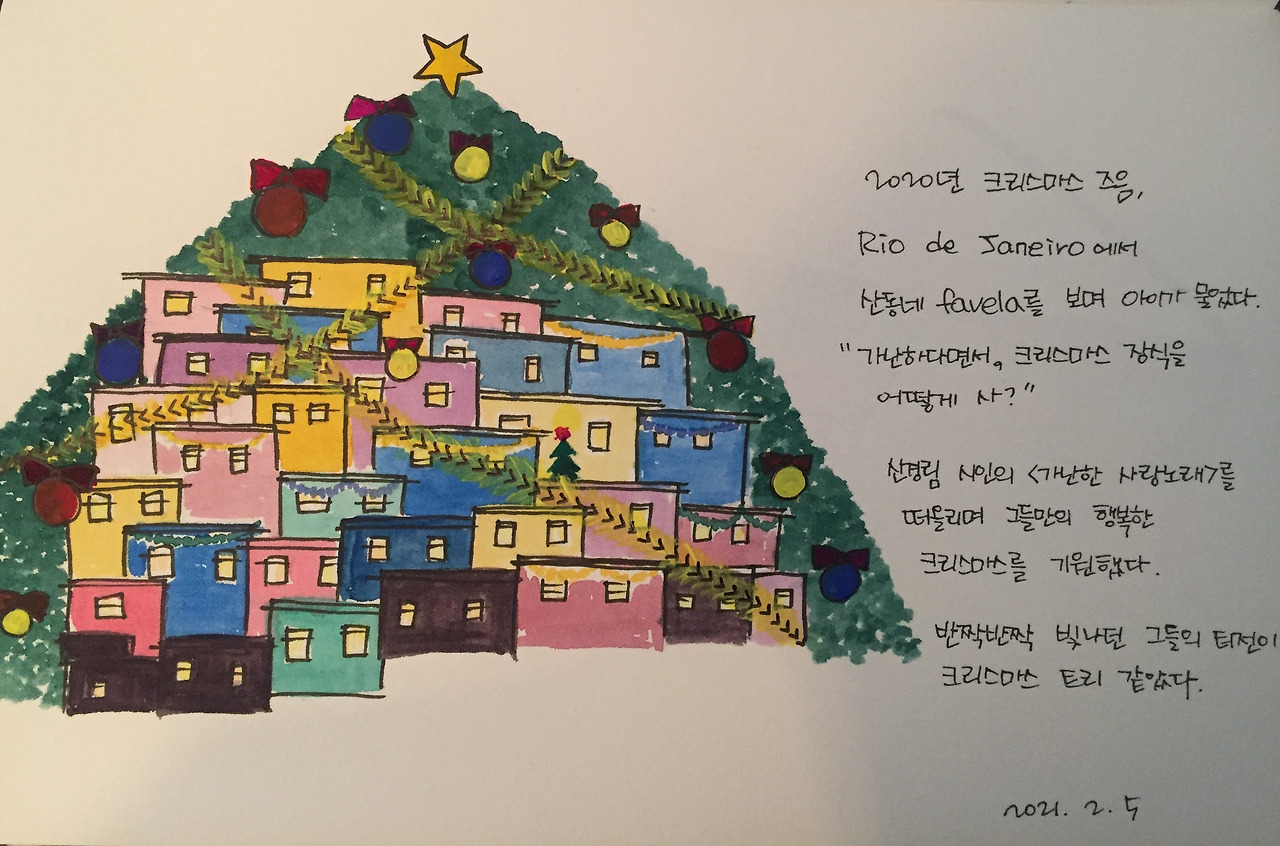 2020년 크리스마스 즈음,
Rio de Janeiro에서
산동네 favela를 보며 아이가 물었다.
"가난하다면서, 크리스마스 장식을
어떻게 사?"
신경림 시인의 <가난한 사랑노래>를
떠올리며 그들만의 행복한
크리스마스를 기원했다.
반짝반짝 빛나던 그들의 터전이
크리스마스 트리 같았다.
2021. 2. 5